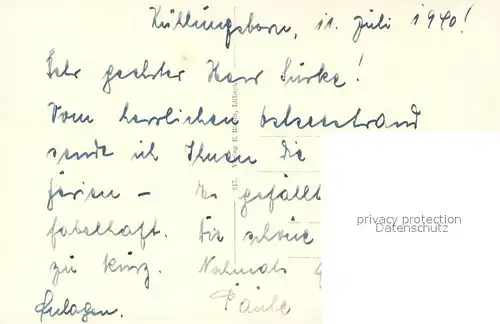 Kühlungsborn, 11. Juli 1940!
Sehr geehrter Herr Lürke!
Vom herrlichen Ostseestrand
sende ich Ihnen die
Ferien – Es gefällt
fabelhaft. Die schöne
zu kurz. Nochmals
Anlagen. Paule
817. Verlag
privacy protection
Datenschutz